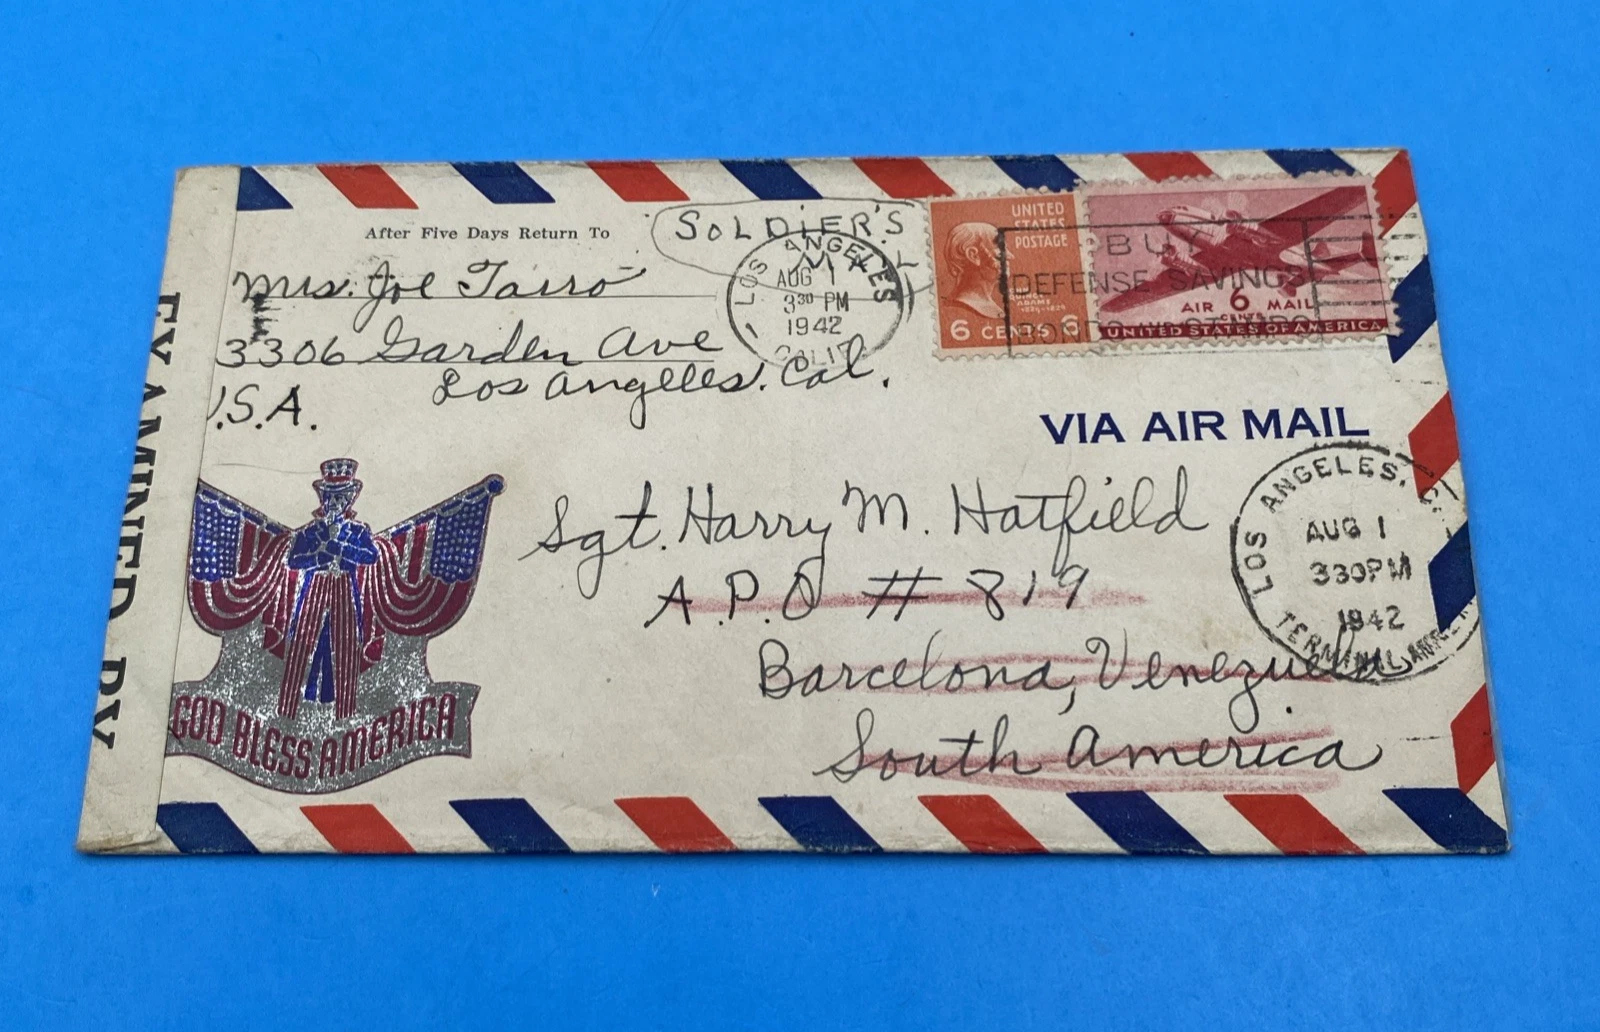 After Five Days Return To
Mrs. Joe Tairo
3306 Garden Ave
Los Angeles. Cal.
U.S.A.
SOLDIER'S
MAIL
LOS ANGELES
AUG 1
3 30 PM
1942
CALIF
UNITED
STATES
POSTAGE
QUINCY
ADAMS
1824-1829
6 CENTS 6
BUY
DEFENSE SAVINGS
BONDS
AIR 6 MAIL
CENTS
UNITED STATES OF AMERICA
VIA AIR MAIL
Sgt. Harry M. Hatfield
A.P.O # 819
Barcelona, Venezuela
South America
LOS ANGELES, C
AUG 1
3 30 PM
1942
TERMINAL ANNEX
GOD BLESS AMERICA
EXAMINED BY